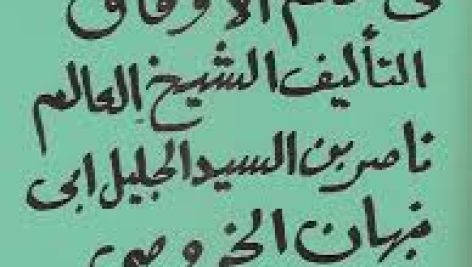 في علم الاوفاق
التأليف الشيخ العالم
ناصر بن السيد الجليل ابي
نبهان الخروصي